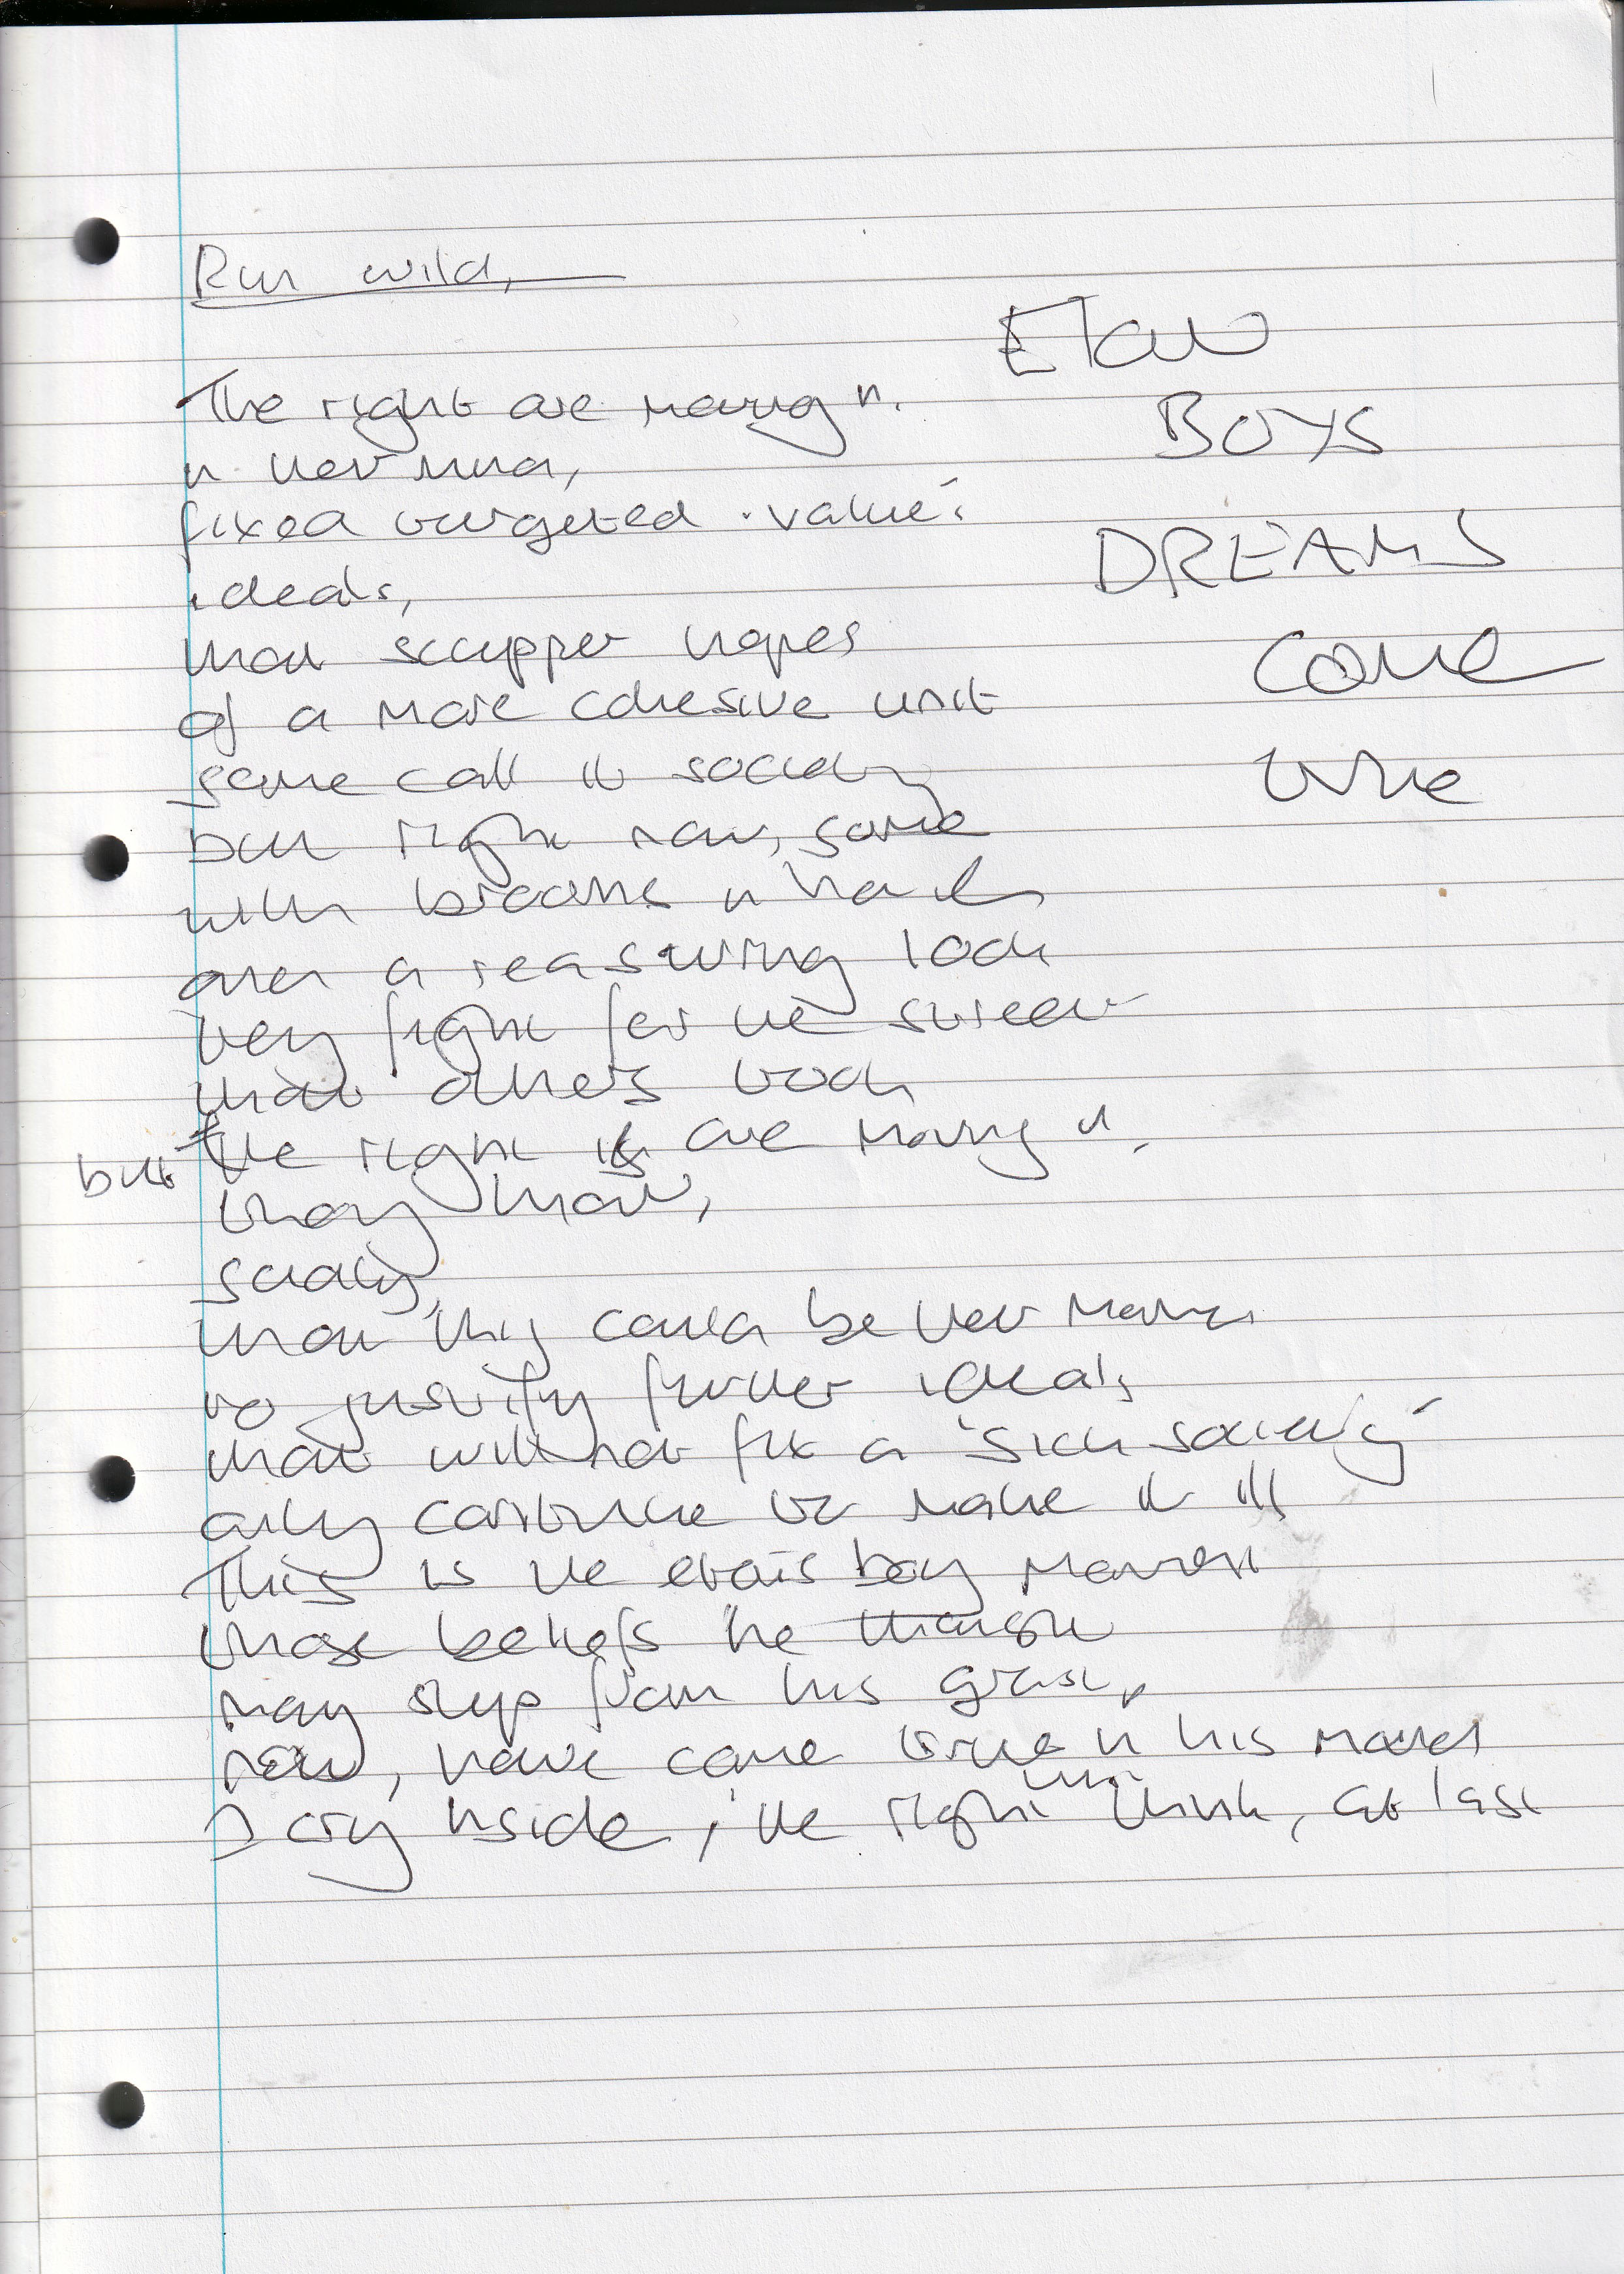 Run wild,
The right are moving in.
in their mind,
fixed targeted 'value'
ideals,
that scupper hopes
of a more cohesive unit
some call it society
but right now, some
with brooms in hand
and a reassuring look
they fight for the street
that others took
but the right are moving in,
they that,
sadly,
that this could be their moment
to justify further ideals
that will not fix a 'sick society'
only continue to make it ill
This is the etons boy moment
those beliefs he thought
may slip from his grasp,
now, have come true in his mind
I cry inside, the right think, at last
Eton
BOYS
DREAMS
come
true